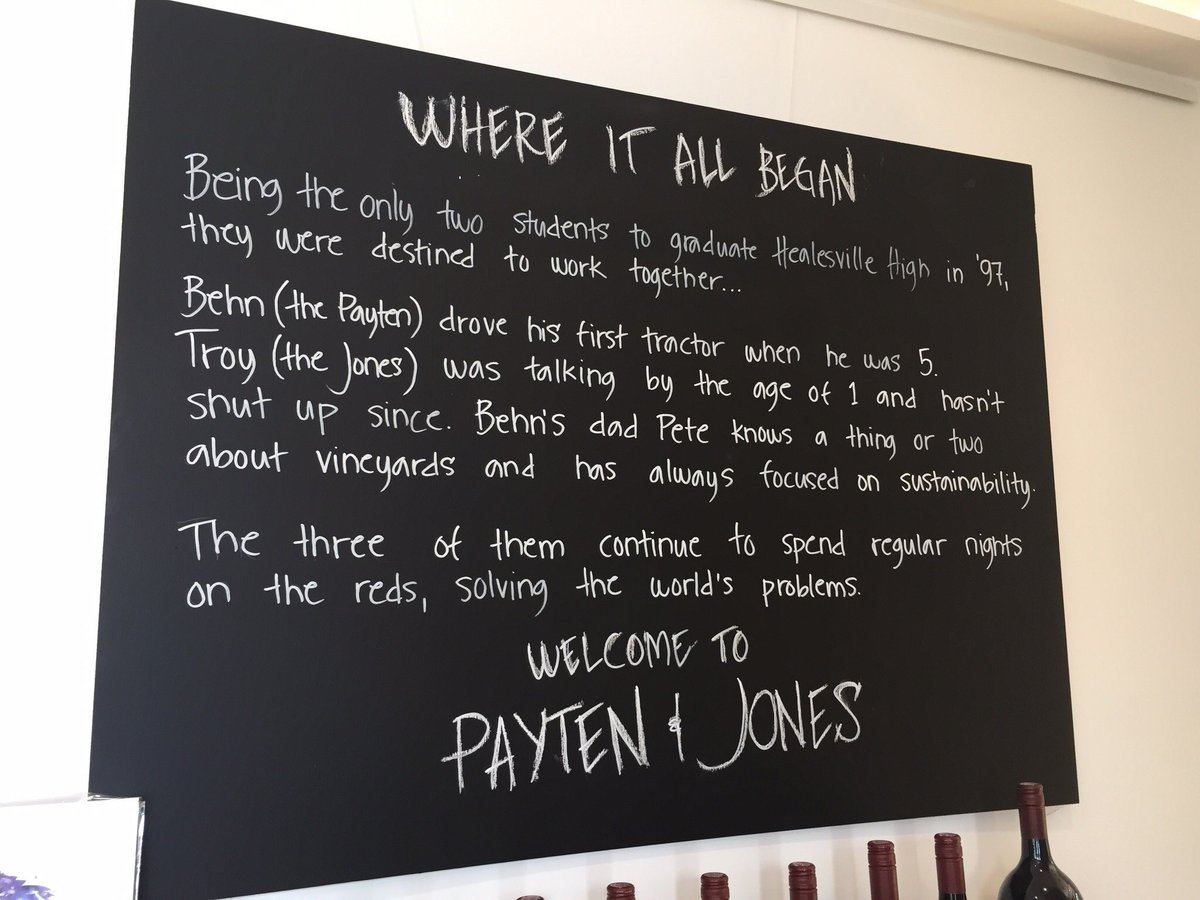 WHERE IT ALL BEGAN
Being the only two students to graduate Healesville High in '97,
they were destined to work together...
Behn (the Payten) drove his first tractor when he was 5.
Troy (the Jones) was talking by the age of 1 and hasn't
shut up since. Behn's dad Pete knows a thing or two
about vineyards and has always focused on sustainability.
The three of them continue to spend regular nights
on the reds, solving the world's problems.
WELCOME TO
PAYTEN & JONES